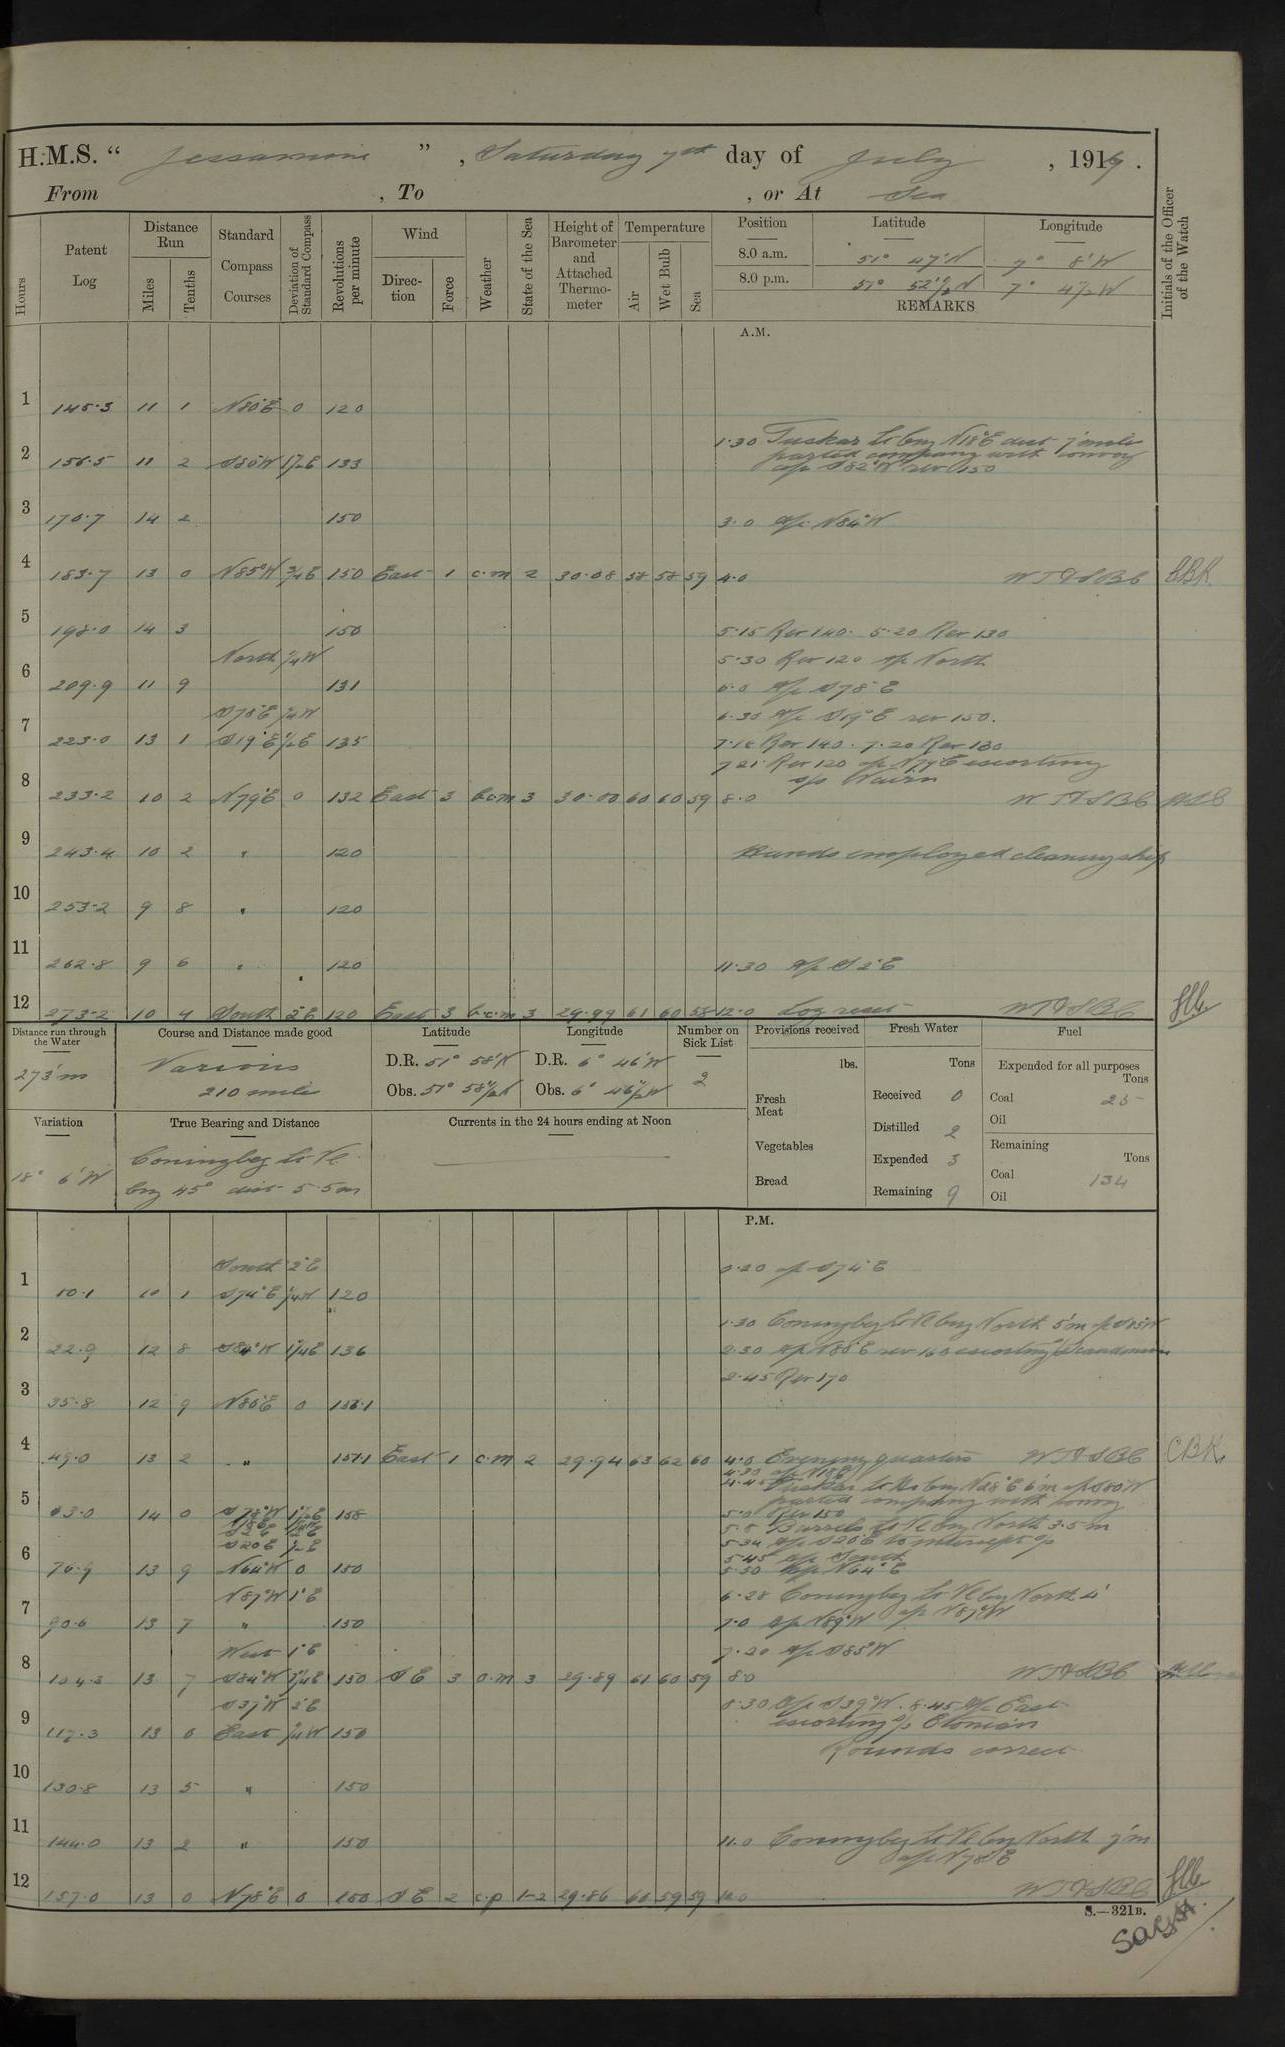 H.M.S. " Jessamine ", Saturday 7th day of July, 1917.
From , To , or At Sea
Hours Patent Log Distance Run Miles Tenths Standard Compass Courses Deviation of Standard Compass Revolutions per minute Wind Direction Force Weather State of the Sea Height of Barometer and Attached Thermometer Temperature Air Wet Bulb Sea Position Latitude Longitude Initials of the Officer of the Watch
8.0 a.m. 51° 47' N 7° 8' W
8.0 p.m. 51° 52½' N 7° 4½ W
REMARKS
A.M.
1 145.3 11 1 N80°E 0 120
1.30 Tuskar Lt brg N18°E dist 7 mile
2 156.5 11 2 S80°W 1½E 133 parted company with convoy
a/c S82°W rev 150
3 170.7 14 2 150 3.0 a/c N84°W
4 183.7 13 0 N85°W ¾E 150 East 1 c.m 2 30.08 58 58 59 4.0 CBK
5 198.0 14 3 150 5.15 Rev 140. 5.20 Rev 130
North ¼W 5.30 Rev 120 a/c North
6 209.9 11 9 131 6.0 a/c S78°E
S78°E ¼W 6.30 a/c S19°E rev 150.
7 223.0 13 1 S19°E ½E 135 Rev 140. 7.20 Rev 130
7.21 Rev 120 a/c N79°E escorting
s/s Nairn
8 233.2 10 2 N79°E 0 132 East 3 b.c.m 3 30.00 60 60 59 8.0
9 243.4 10 2 " 120 Hands employed cleaning ship
10 253.2 9 8 " 120
11 262.8 9 6 " 120 11.30 a/c S2°E
12 273.2 10 4 South 2°E 120 East 3 b.c.m 3 29.99 61 60 58 12.0 Log reset
Distance run through the Water Course and Distance made good Latitude Longitude Number on Sick List Provisions received Fresh Water Fuel
273'm Various 210 mile
D.R. 51° 58' N D.R. 6° 46' W 2
Obs. 51° 58½' N Obs. 6° 46½' W
lbs. Tons Expended for all purposes Tons
Fresh Meat Received 0 Coal 25
Distilled 2 Oil
Variation True Bearing and Distance Currents in the 24 hours ending at Noon
Vegetables Expended 3 Remaining Tons
Bread Remaining 9 Coal 134
Oil
18° 6' W Coningbeg Lt Vl
brg 45° dist 5.5m
P.M.
South 2°E 0.20 a/c S74°E
1 10.1 10 1 S74°E ¼W 120
1.30 Coningbeg Lt Vl brg North 5'm a/c S85W
2 22.9 12 8 S84°W 1¼E 136 2.30 a/c N80°E rev 160 escorting
2.45 Rev 170
3 35.8 12 9 N80°E 0 156.1
4 49.0 13 2 " 157.1 East 1 c.m 2 29.94 63 62 60 4.0 Evening quarters CBK
4.45 Tuskar Lt Ho brg N28°E 6'm a/c S80°W
parted company with convoy
5 63.0 14 0 S78°W 1½E 158 5.0 Rev 150
5.5 Barrels Lt Vl brg North 3.5m
S20E ½E 5.34 a/c S20°E to intercept s/s
5.45 a/c South
6 76.9 13 9 N64°W 0 150 5.50 a/c N64°E
N87°W 1°E 6.28 Coningbeg Lt Vl brg North 4'
a/c N87°W
7 90.6 13 7 " 150 7.0 a/c N89°W
West 1°E 7.20 a/c S85°W
8 104.3 13 7 S84°W 1¼E 150 SE 3 o.m 3 29.89 61 60 59 8.0
S37°W 2°E 8.30 a/c S39°W. 8.45 a/c East
escorting s/s Etonian
9 117.3 13 0 East ¼W 150
Rounds correct
10 130.8 13 5 " 150
11 144.0 13 2 " 150 11.0 Coningbeg Lt Vl brg North 7'm
a/c N78°E
12 157.0 13 0 N78°E 0 150 SE 2 c.p 1-2 29.86 60 59 59 12.0
S.—321B.